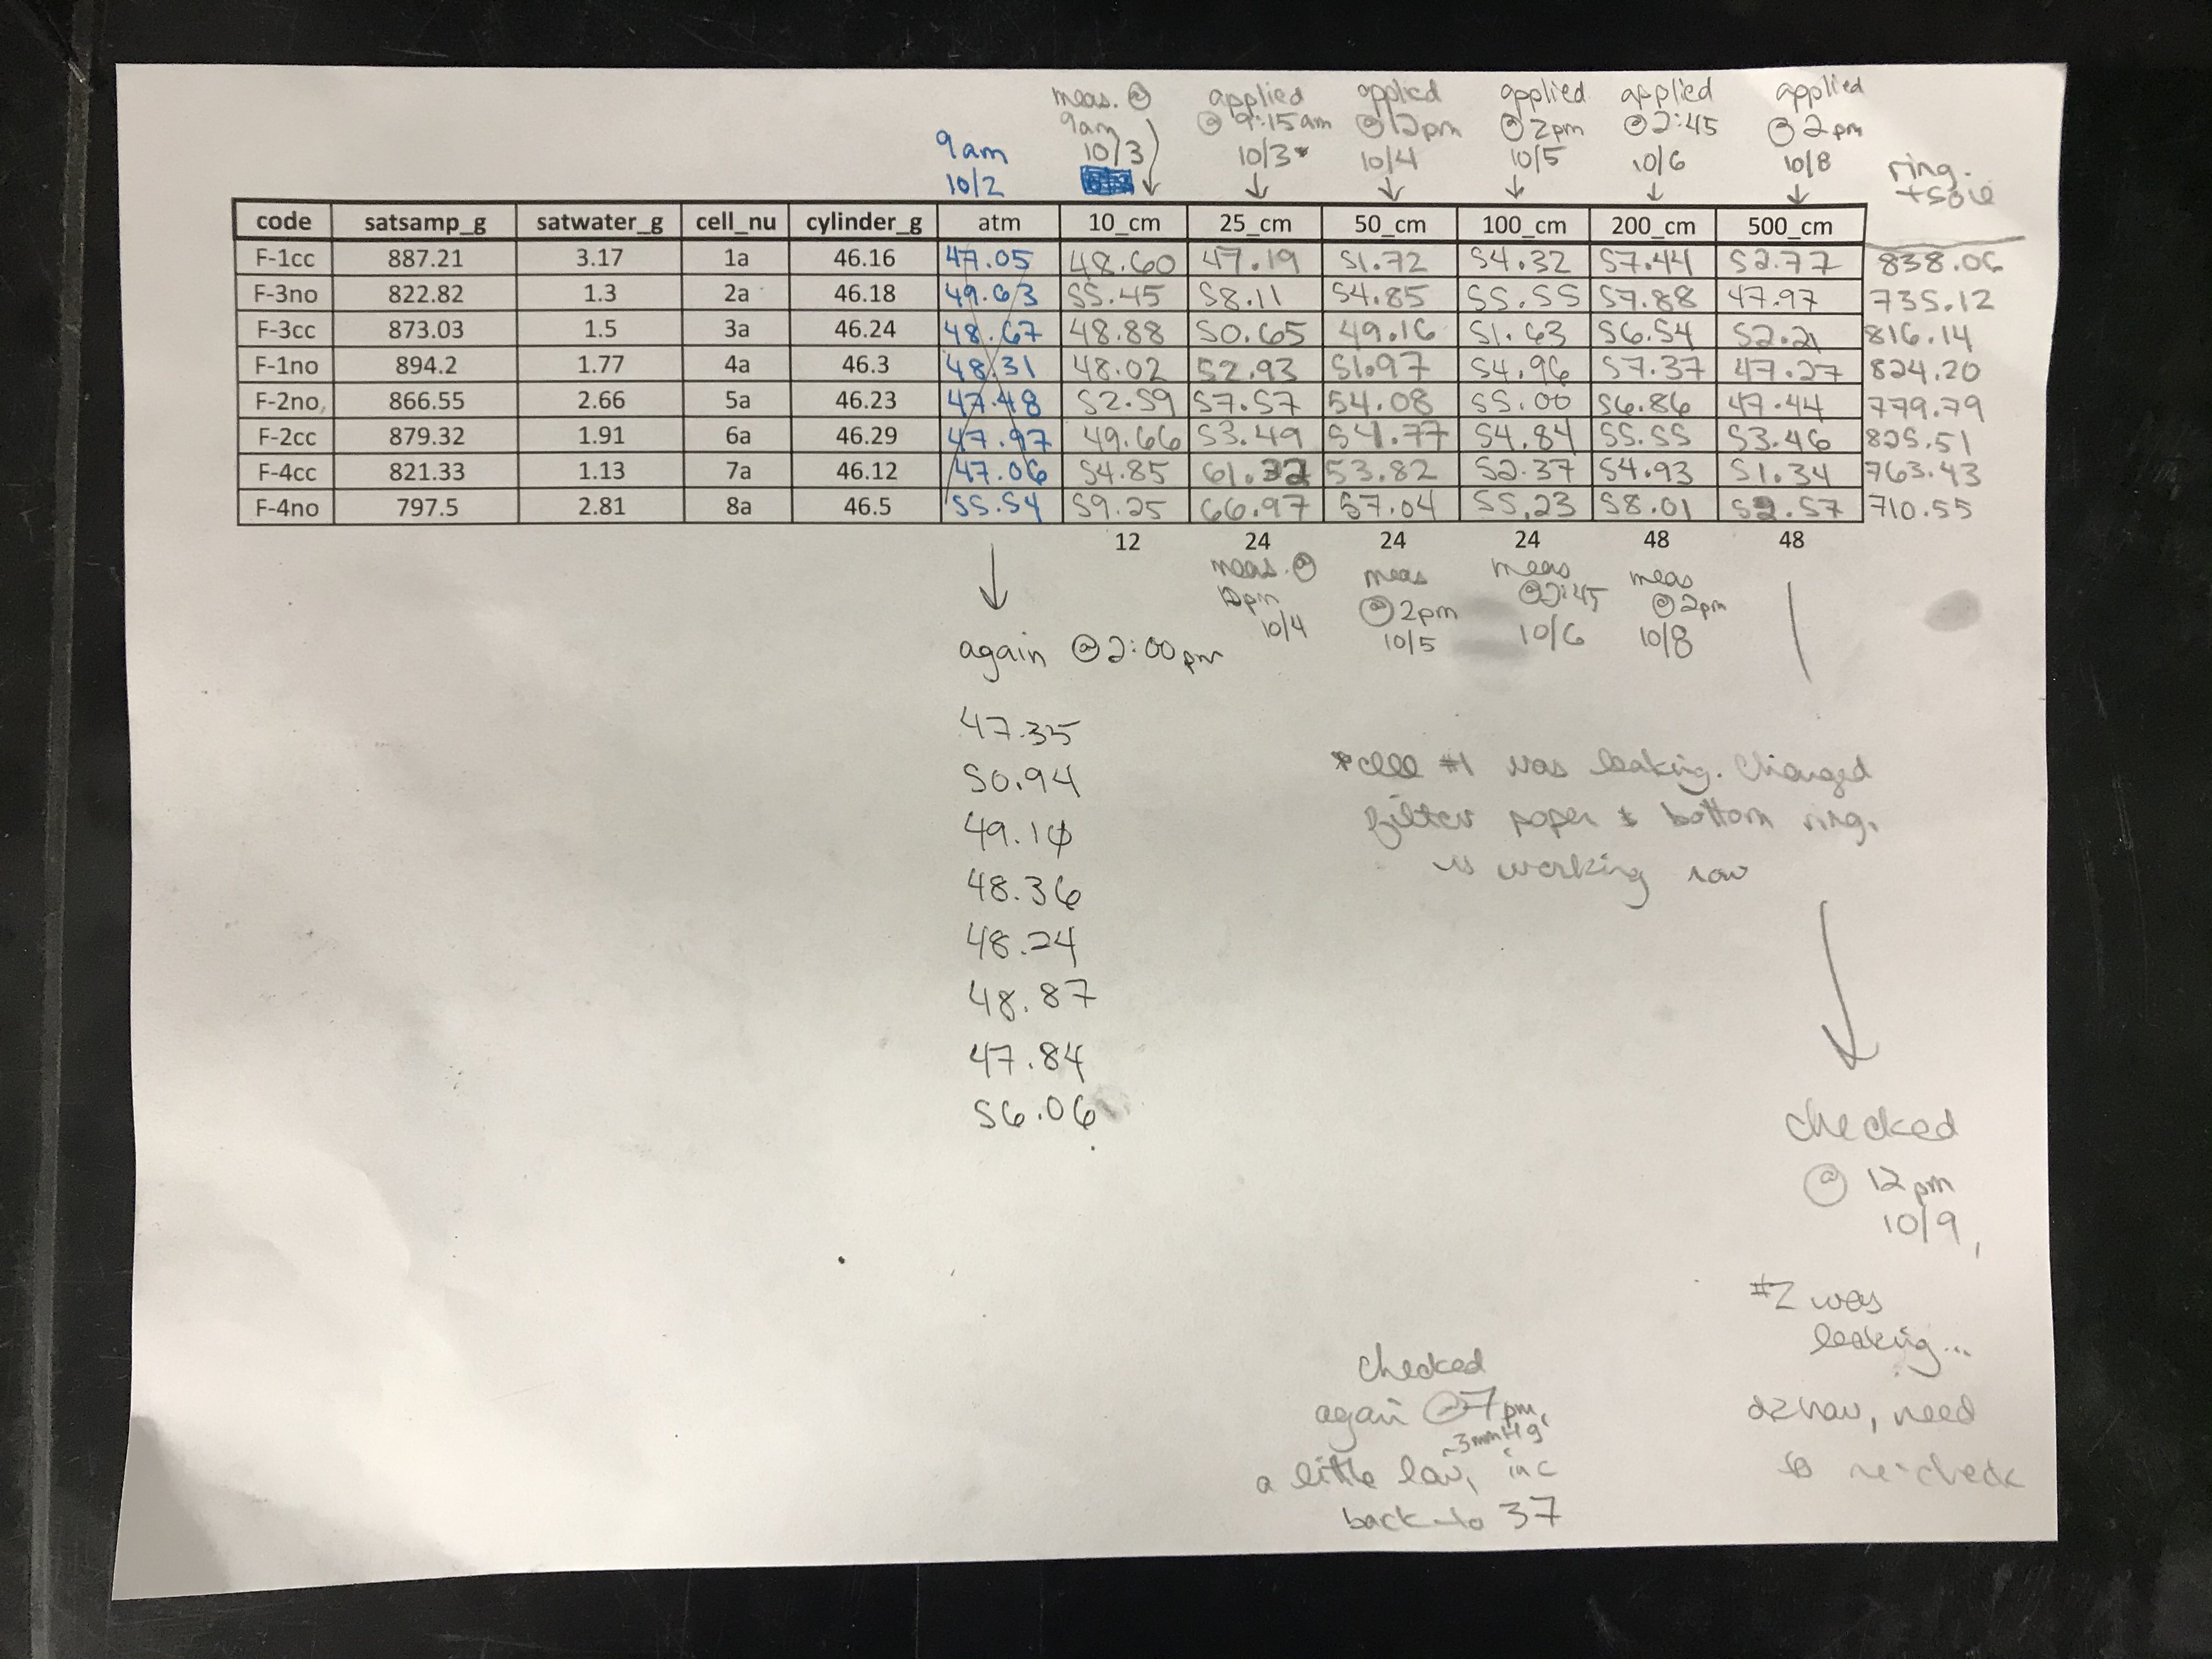 meas. @ applied applied applied applied applied
9am @ 9:15am @ 12pm @ 2pm @ 2:45 @ 2pm
9am 10/3 10/3* 10/4 10/5 10/6 10/8 ring.
10/2 + soil
code satsamp_g satwater_g cell_nu cylinder_g atm 10_cm 25_cm 50_cm 100_cm 200_cm 500_cm
F-1cc 887.21 3.17 1a 46.16 47.05 48.60 47.19 51.72 54.32 57.44 52.77 838.06
F-3no 822.82 1.3 2a 46.18 49.63 55.45 58.11 54.85 55.55 57.88 47.97 735.12
F-3cc 873.03 1.5 3a 46.24 48.67 48.88 50.65 49.16 51.63 56.54 52.21 816.14
F-1no 894.2 1.77 4a 46.3 48.31 48.02 52.93 51.97 54.96 57.37 47.27 824.20
F-2no, 866.55 2.66 5a 46.23 47.48 52.59 57.57 54.08 55.00 56.86 47.44 779.79
F-2cc 879.32 1.91 6a 46.29 47.97 49.66 53.49 54.77 54.84 55.55 53.46 825.51
F-4cc 821.33 1.13 7a 46.12 47.06 54.85 61.32 53.82 52.37 54.93 51.34 763.43
F-4no 797.5 2.81 8a 46.5 55.54 59.25 66.97 57.04 55.23 58.01 52.57 710.55
12 24 24 24 48 48
meas. @ meas meas meas
12pm @ 2pm @2:45 @ 2pm
10/4 10/5 10/6 10/8
again @ 2:00pm
47.35
50.94
49.10
48.36
48.24
48.87
47.84
56.06
*cell #1 was leaking. Changed
filter paper & bottom ring.
is working now
checked
@ 12pm
10/9,
#2 was
leaking...
need
to re-check
checked
again @ 7pm,
~3mmHg
a little low, inc
back to 37